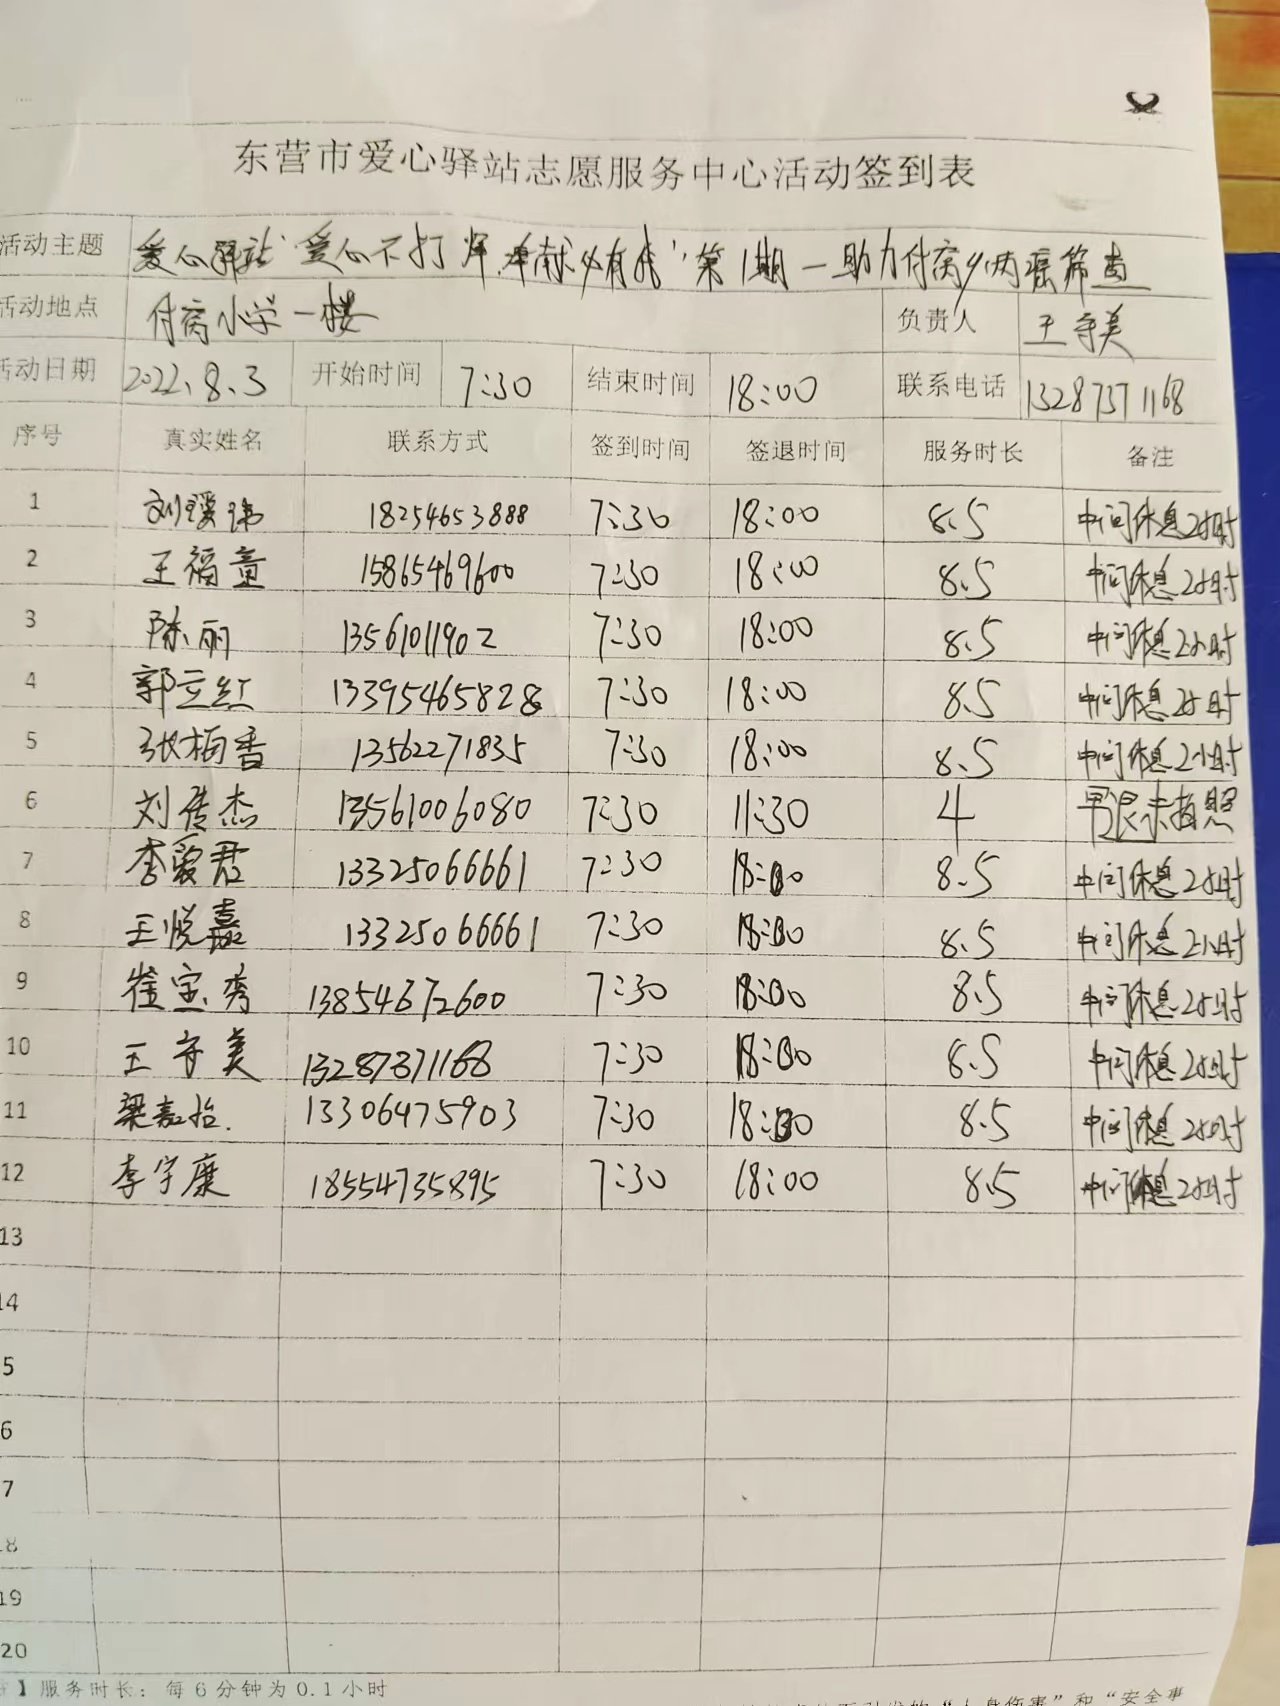 东营市爱心驿站志愿服务中心活动签到表
活动主题 爱心驿站"爱心不打烊,奉献必有我"第1期一助力付窝乡两癌筛查
活动地点 付窝小学一楼 负责人 王守美
活动日期 2022.8.3 开始时间 7:30 结束时间 18:00 联系电话 13287371168
序号 真实姓名 联系方式 签到时间 签退时间 服务时长 备注
1 刘瑷玮 18254653888 7:30 18:00 8.5 中间休息2小时
2 王福童 15865469600 7:30 18:00 8.5 中间休息2小时
3 陈丽 13561011902 7:30 18:00 8.5 中间休息2小时
4 郭立红 13395465828 7:30 18:00 8.5 中间休息2小时
5 张梅香 13562271835 7:30 18:00 8.5 中间休息2小时
6 刘传杰 13561006080 7:30 11:30 4 早退未拍照
7 李爱君 13325066661 7:30 18:00 8.5 中间休息2小时
8 王悦嘉 13325066661 7:30 18:00 8.5 中间休息2小时
9 崔宝秀 13854672600 7:30 18:00 8.5 中间休息2小时
10 王守美 13287371168 7:30 18:00 8.5 中间休息2小时
11 梁嘉怡. 13306475903 7:30 18:00 8.5 中间休息2小时
12 李宇康 18554735895 7:30 18:00 8.5 中间休息2小时
13
14
5
6
7
18
19
20
】服务时长：每6分钟为0.1小时
"人身伤害"和"安全事